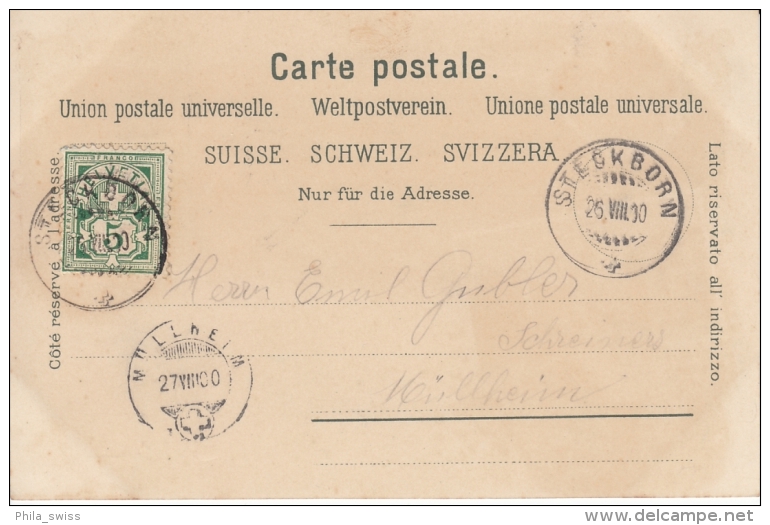 Carte postale.
Union postale universelle. Weltpostverein. Unione postale universale.
SUISSE. SCHWEIZ. SVIZZERA.
Nur für die Adresse.
Côté réservé à l'adresse.
Lato riservato all' indirizzo.
FRANCO
HELVETIA
5
STECKBORN
VIII.00
STECKBORN
26.VIII.00
MÜLLHEIM
27 VIII 00
Herrn Emil Gubler
Schreiners
Müllheim
Phila_swiss
delcampe.net